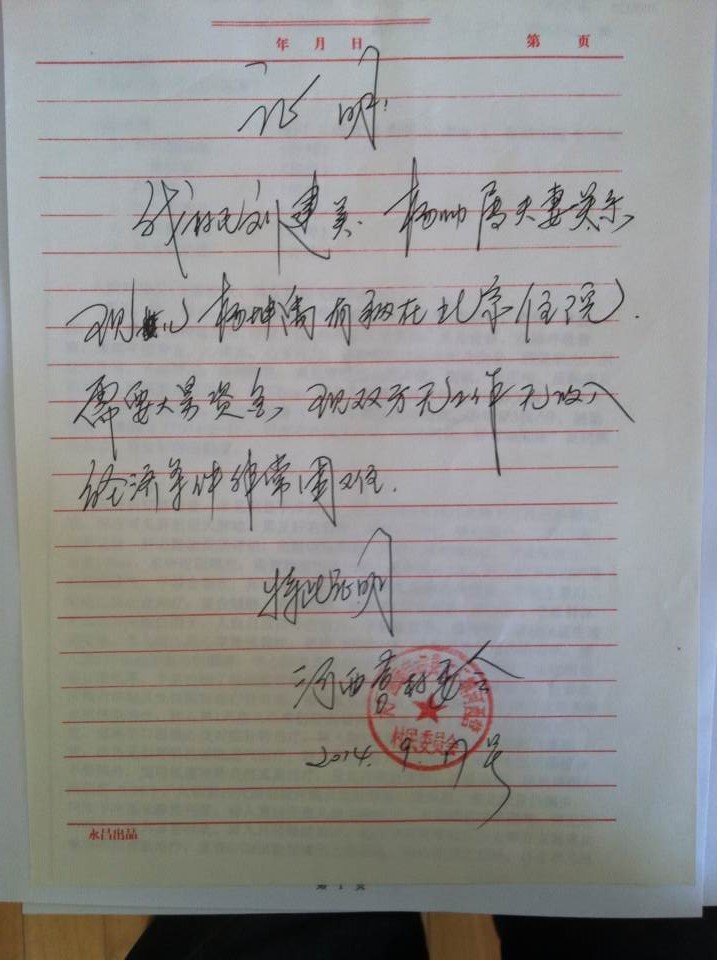 年 月 日 第 页
证明
我村民刘建美、杨帅属夫妻关系,
现 杨坤 有病在北京(住院).
需要大量资金,现双方无工作无收入
经济条件非常困难.
特此证明
河西营村委会
村民委员会
2014.9.17号
永昌出品
第 1 页